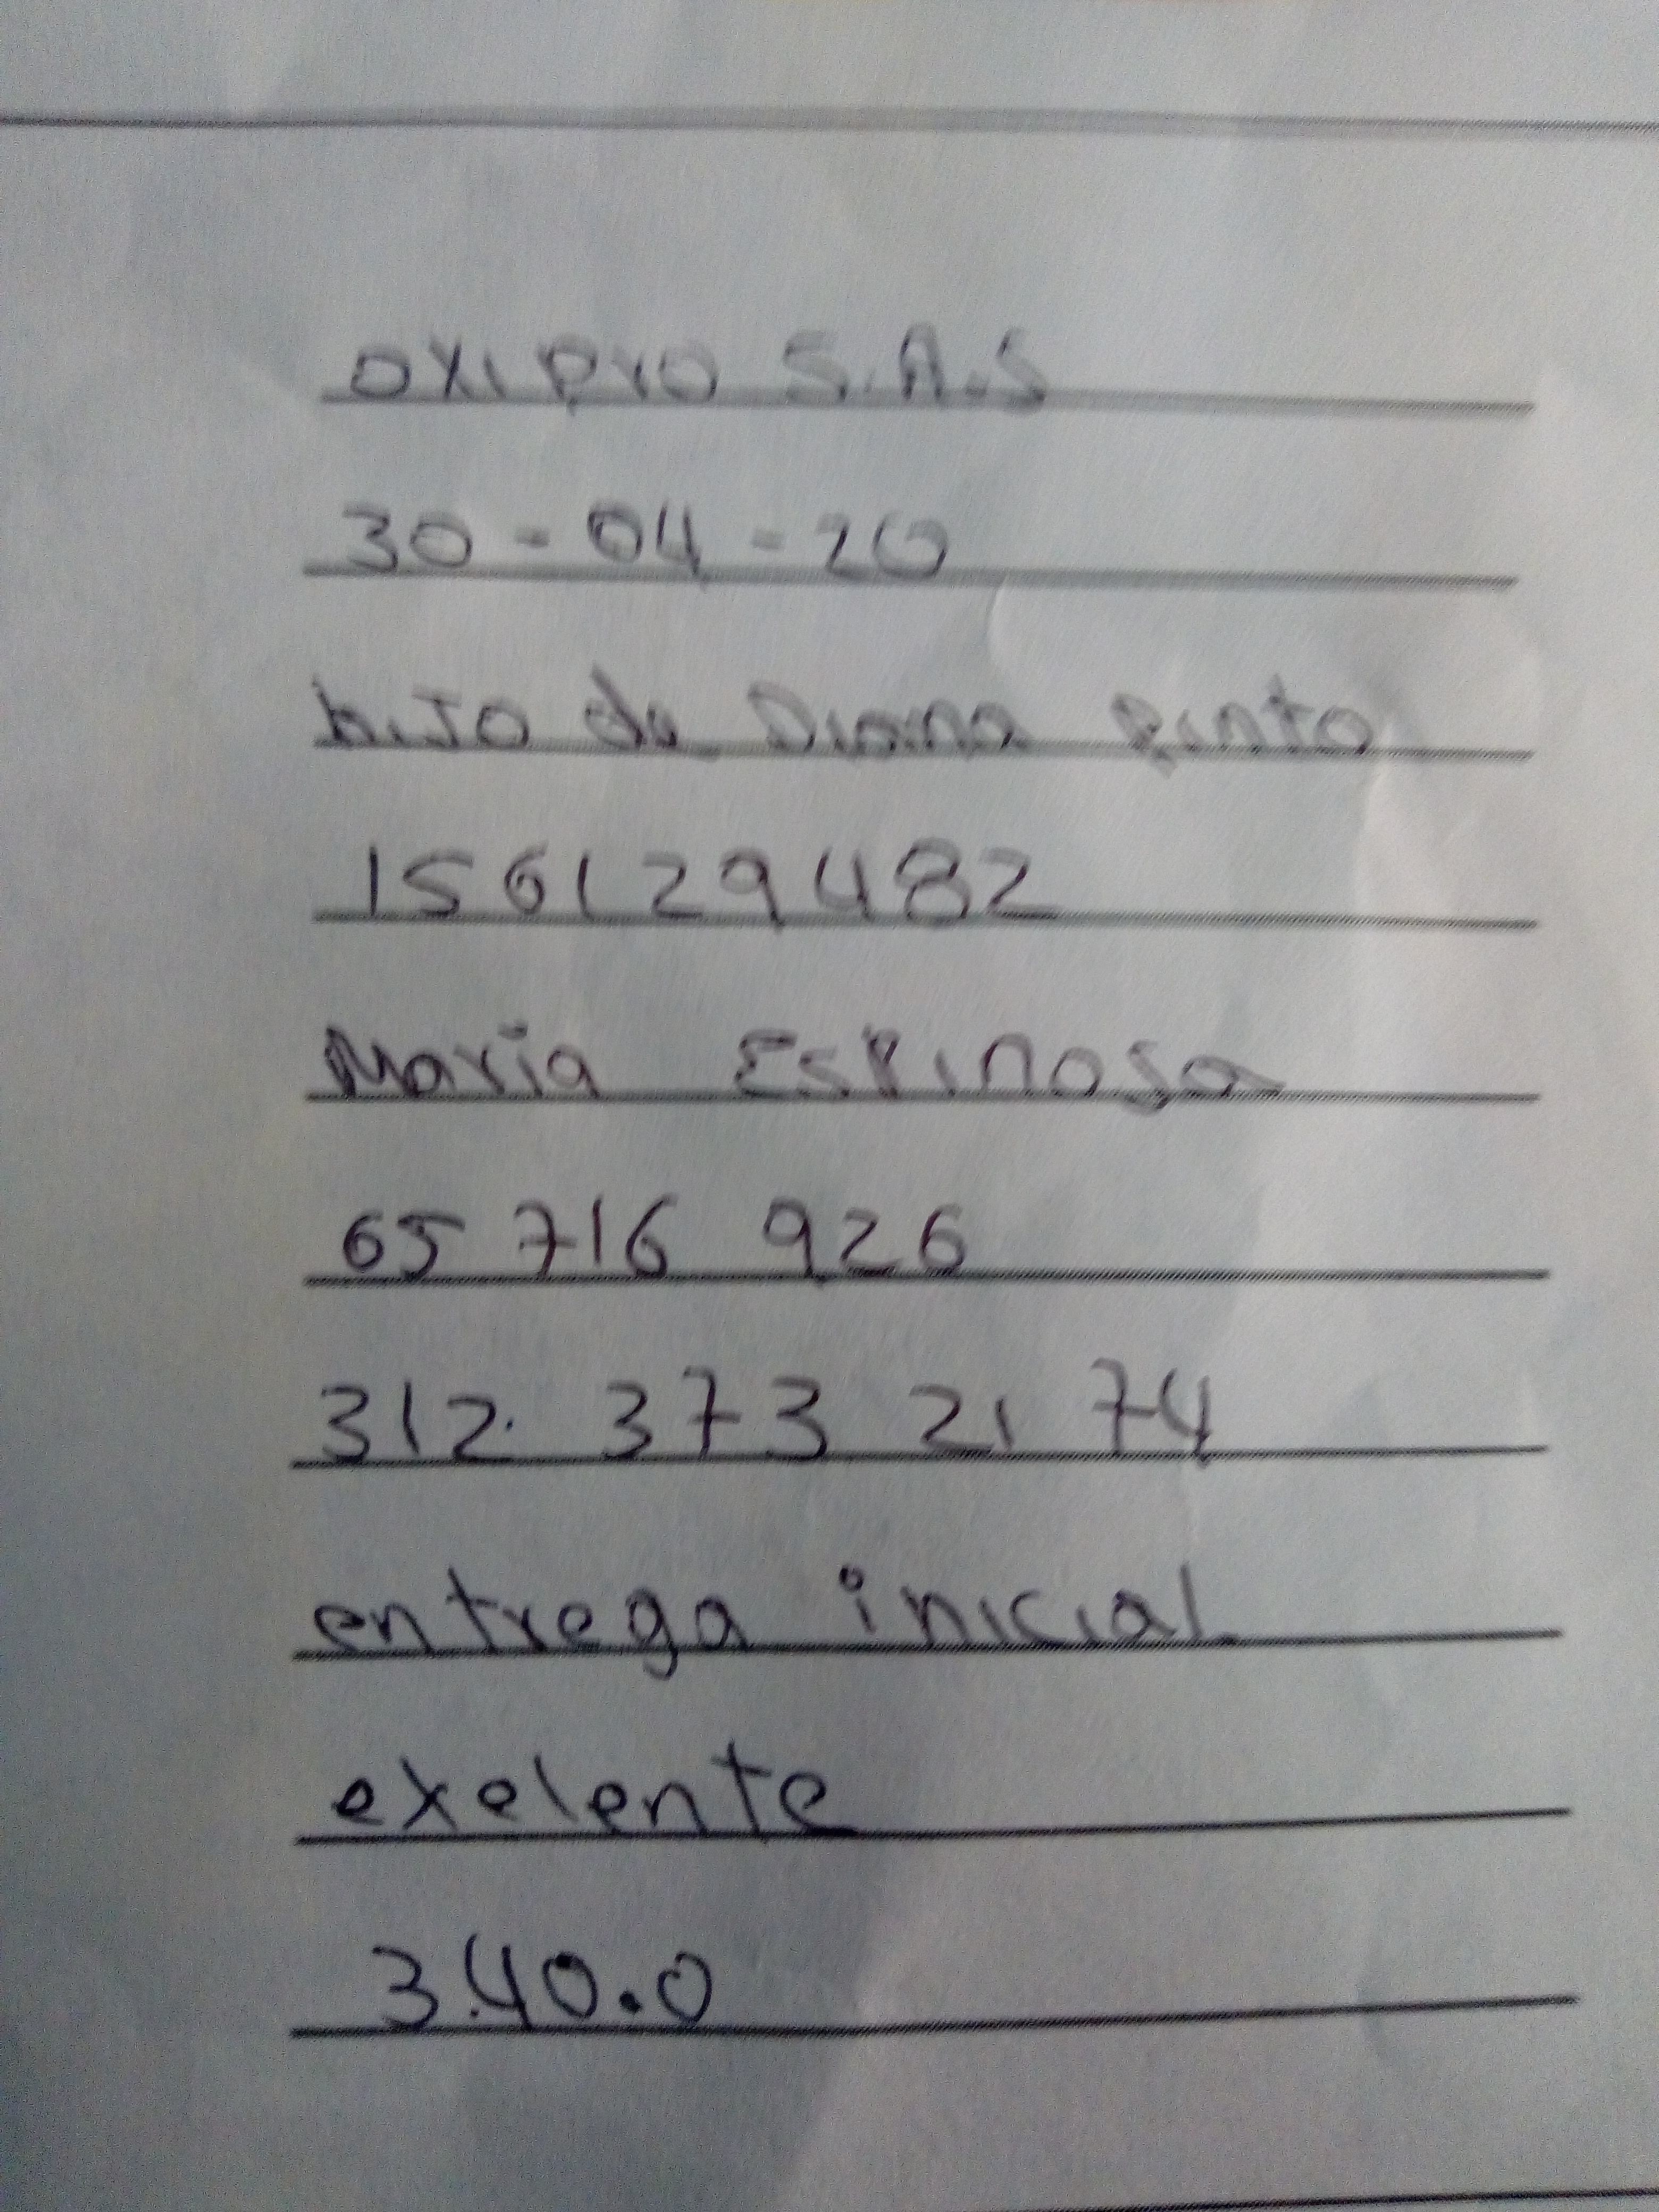 OXIPRO S.A.S
30-04-20
hiJo de Diana pinto
156129482
Maria Espinosa
65 716 926
312. 373 21 74
entrega inicial
exelente
3.40.0